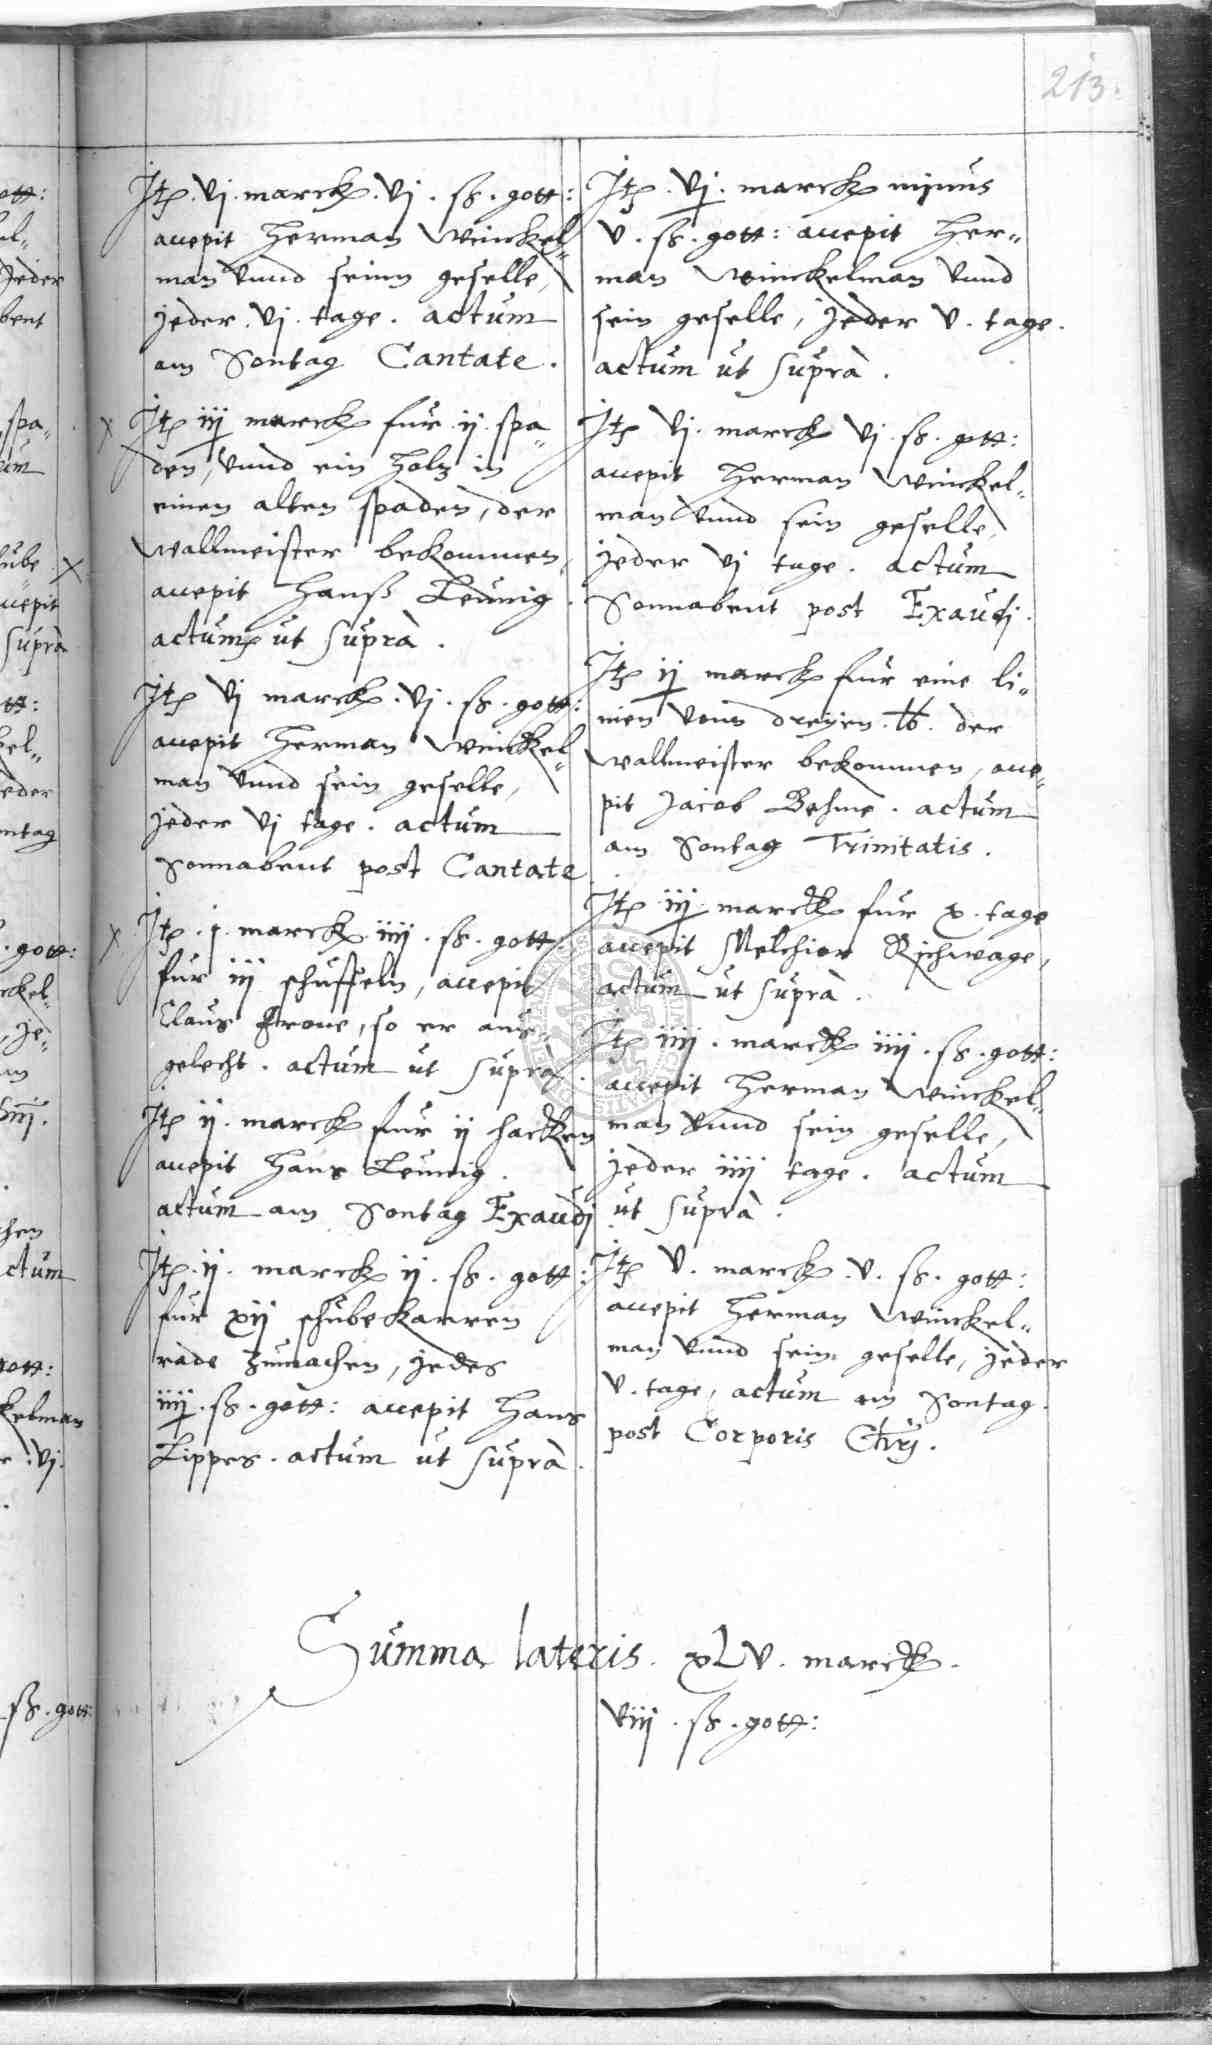 213.
Itē. vj. marck. vj. ß. gott:
accepit Herman Winckel„
man vnnd seinn geselle,
jeder. vj. tage. actum
am Sontag Cantate.
Itē iij marck fur ij. spa„
den, vnnd ein holtz in
einen alten spaden, der
wallmeister bekommen,
accepit Hanß Leunig.
actum ut supra.
Itē vj marck. vj. ß. gott:
accepit Herman Winckel„
man vnnd sein geselle,
jeder vj tage. actum
Sonnabent post Cantate
Itē. j. marck iiij. ß. gott:
fur iij schuffeln, accepit
Claus Grone, so er aus„
gelecht. actum ut supra.
Itē ij. marck fur ij hacken
accepit Hans Leunig.
actum am Sontag Exaudj
Itē. ij. marck ij. ß. gott:
fur xij schubekarren
rade zumachen, jedes
iiij. ß. gott: accepit Hans
Lippes. actum ut supra.
Itē. vj. marck minus
v. ß. gott: accepit Her„
man Winckelman vnnd
sein geselle, jeder v. tage.
actum ut supra.
Itē vj. marck vj. ß. gott:
accepit Herman Winckel„
man vnnd sein geselle,
jeder vj tage. actum
Sonnabent post Exaudj.
Itē ij marck fur eine li„
nien vonn dreyen. lb. der
wallmeister bekommen, acce„
pit Jacob Behme. actum
am Sontag Trinitatis.
Itē iij marck fur x. tage
accepit Melchior Richwage,
actum ut supra.
Itē iiij. marck iiij. ß. gott:
accepit Herman Winckel„
man vnnd sein geselle,
jeder iiij tage. actum
ut supra.
Itē v. marck. v. ß. gott:
accepit Herman Winckel„
man vnnd sein geselle, jeder
v. tage, actum am Sontag
post Corporis Chrj.
Summa lateris. xLv. marck.
viij. ß. gott: